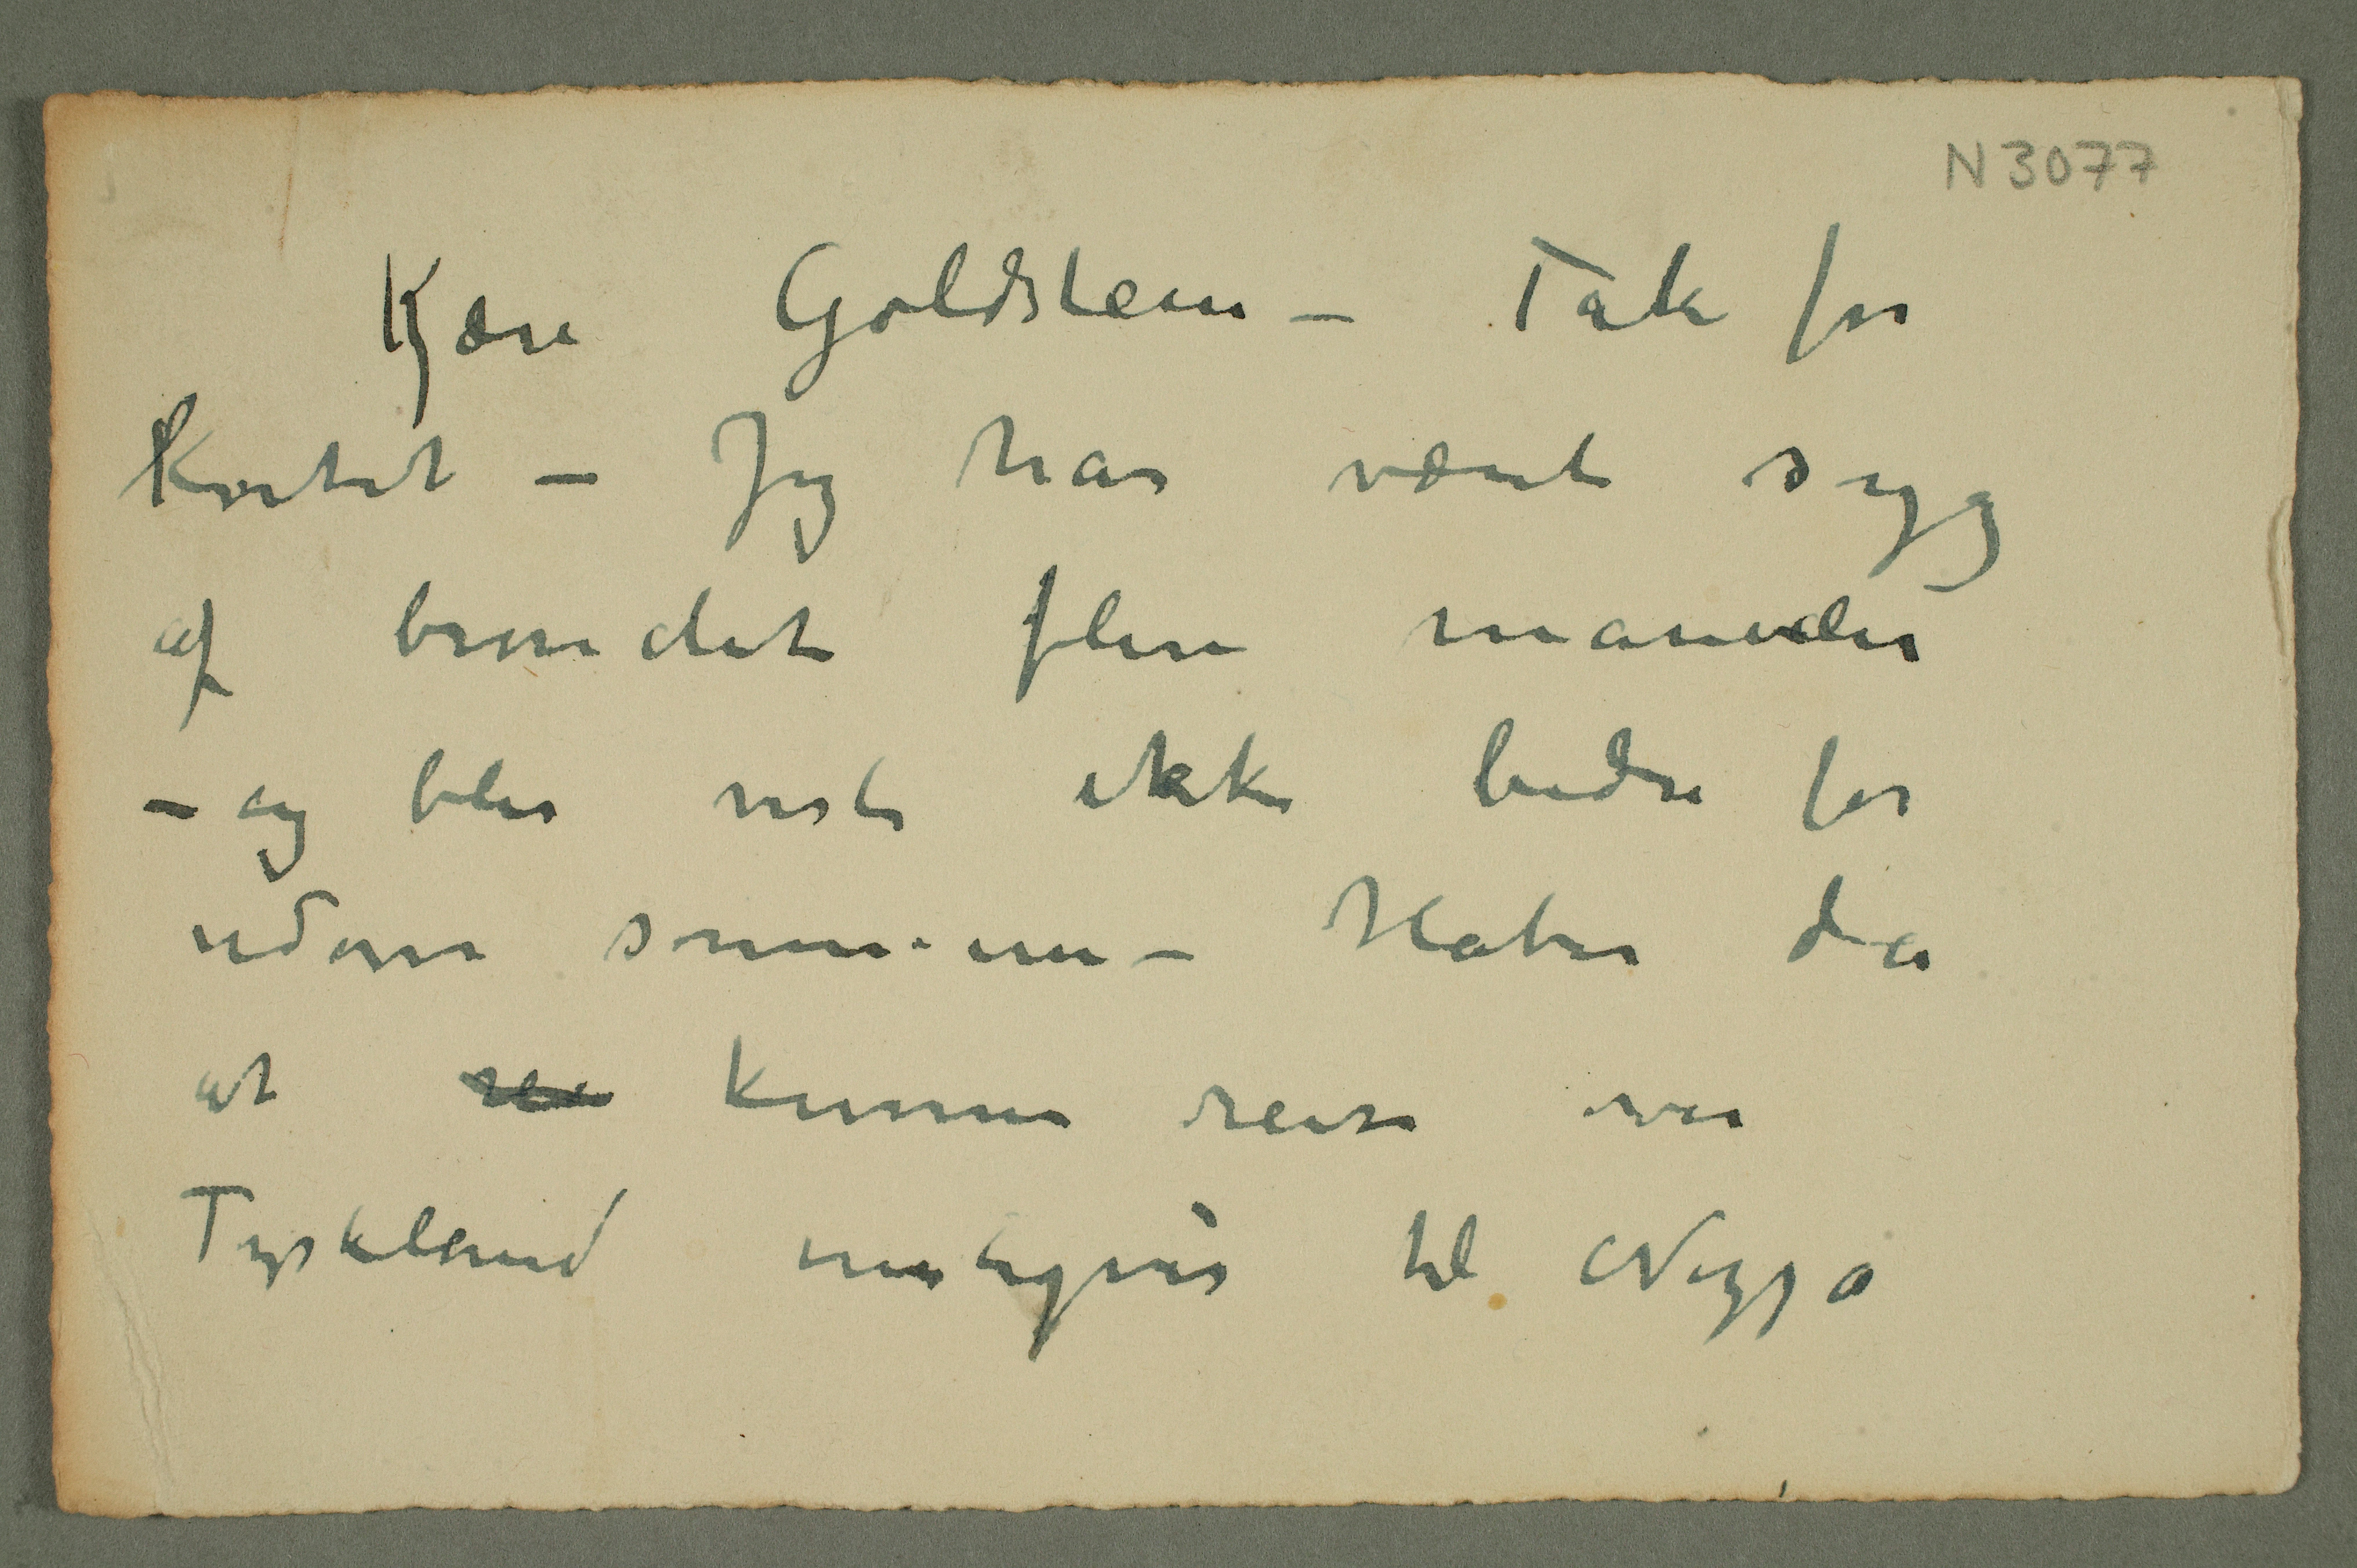 N 3077
Kjære Goldstein – Tak for
Kortet – Jeg har været syg
af bronchit flere maaneder
– og blir vist ikke bedre før
udover sommeren – Haber da
at kunne reise over
Tyskland muligvis til Nizza